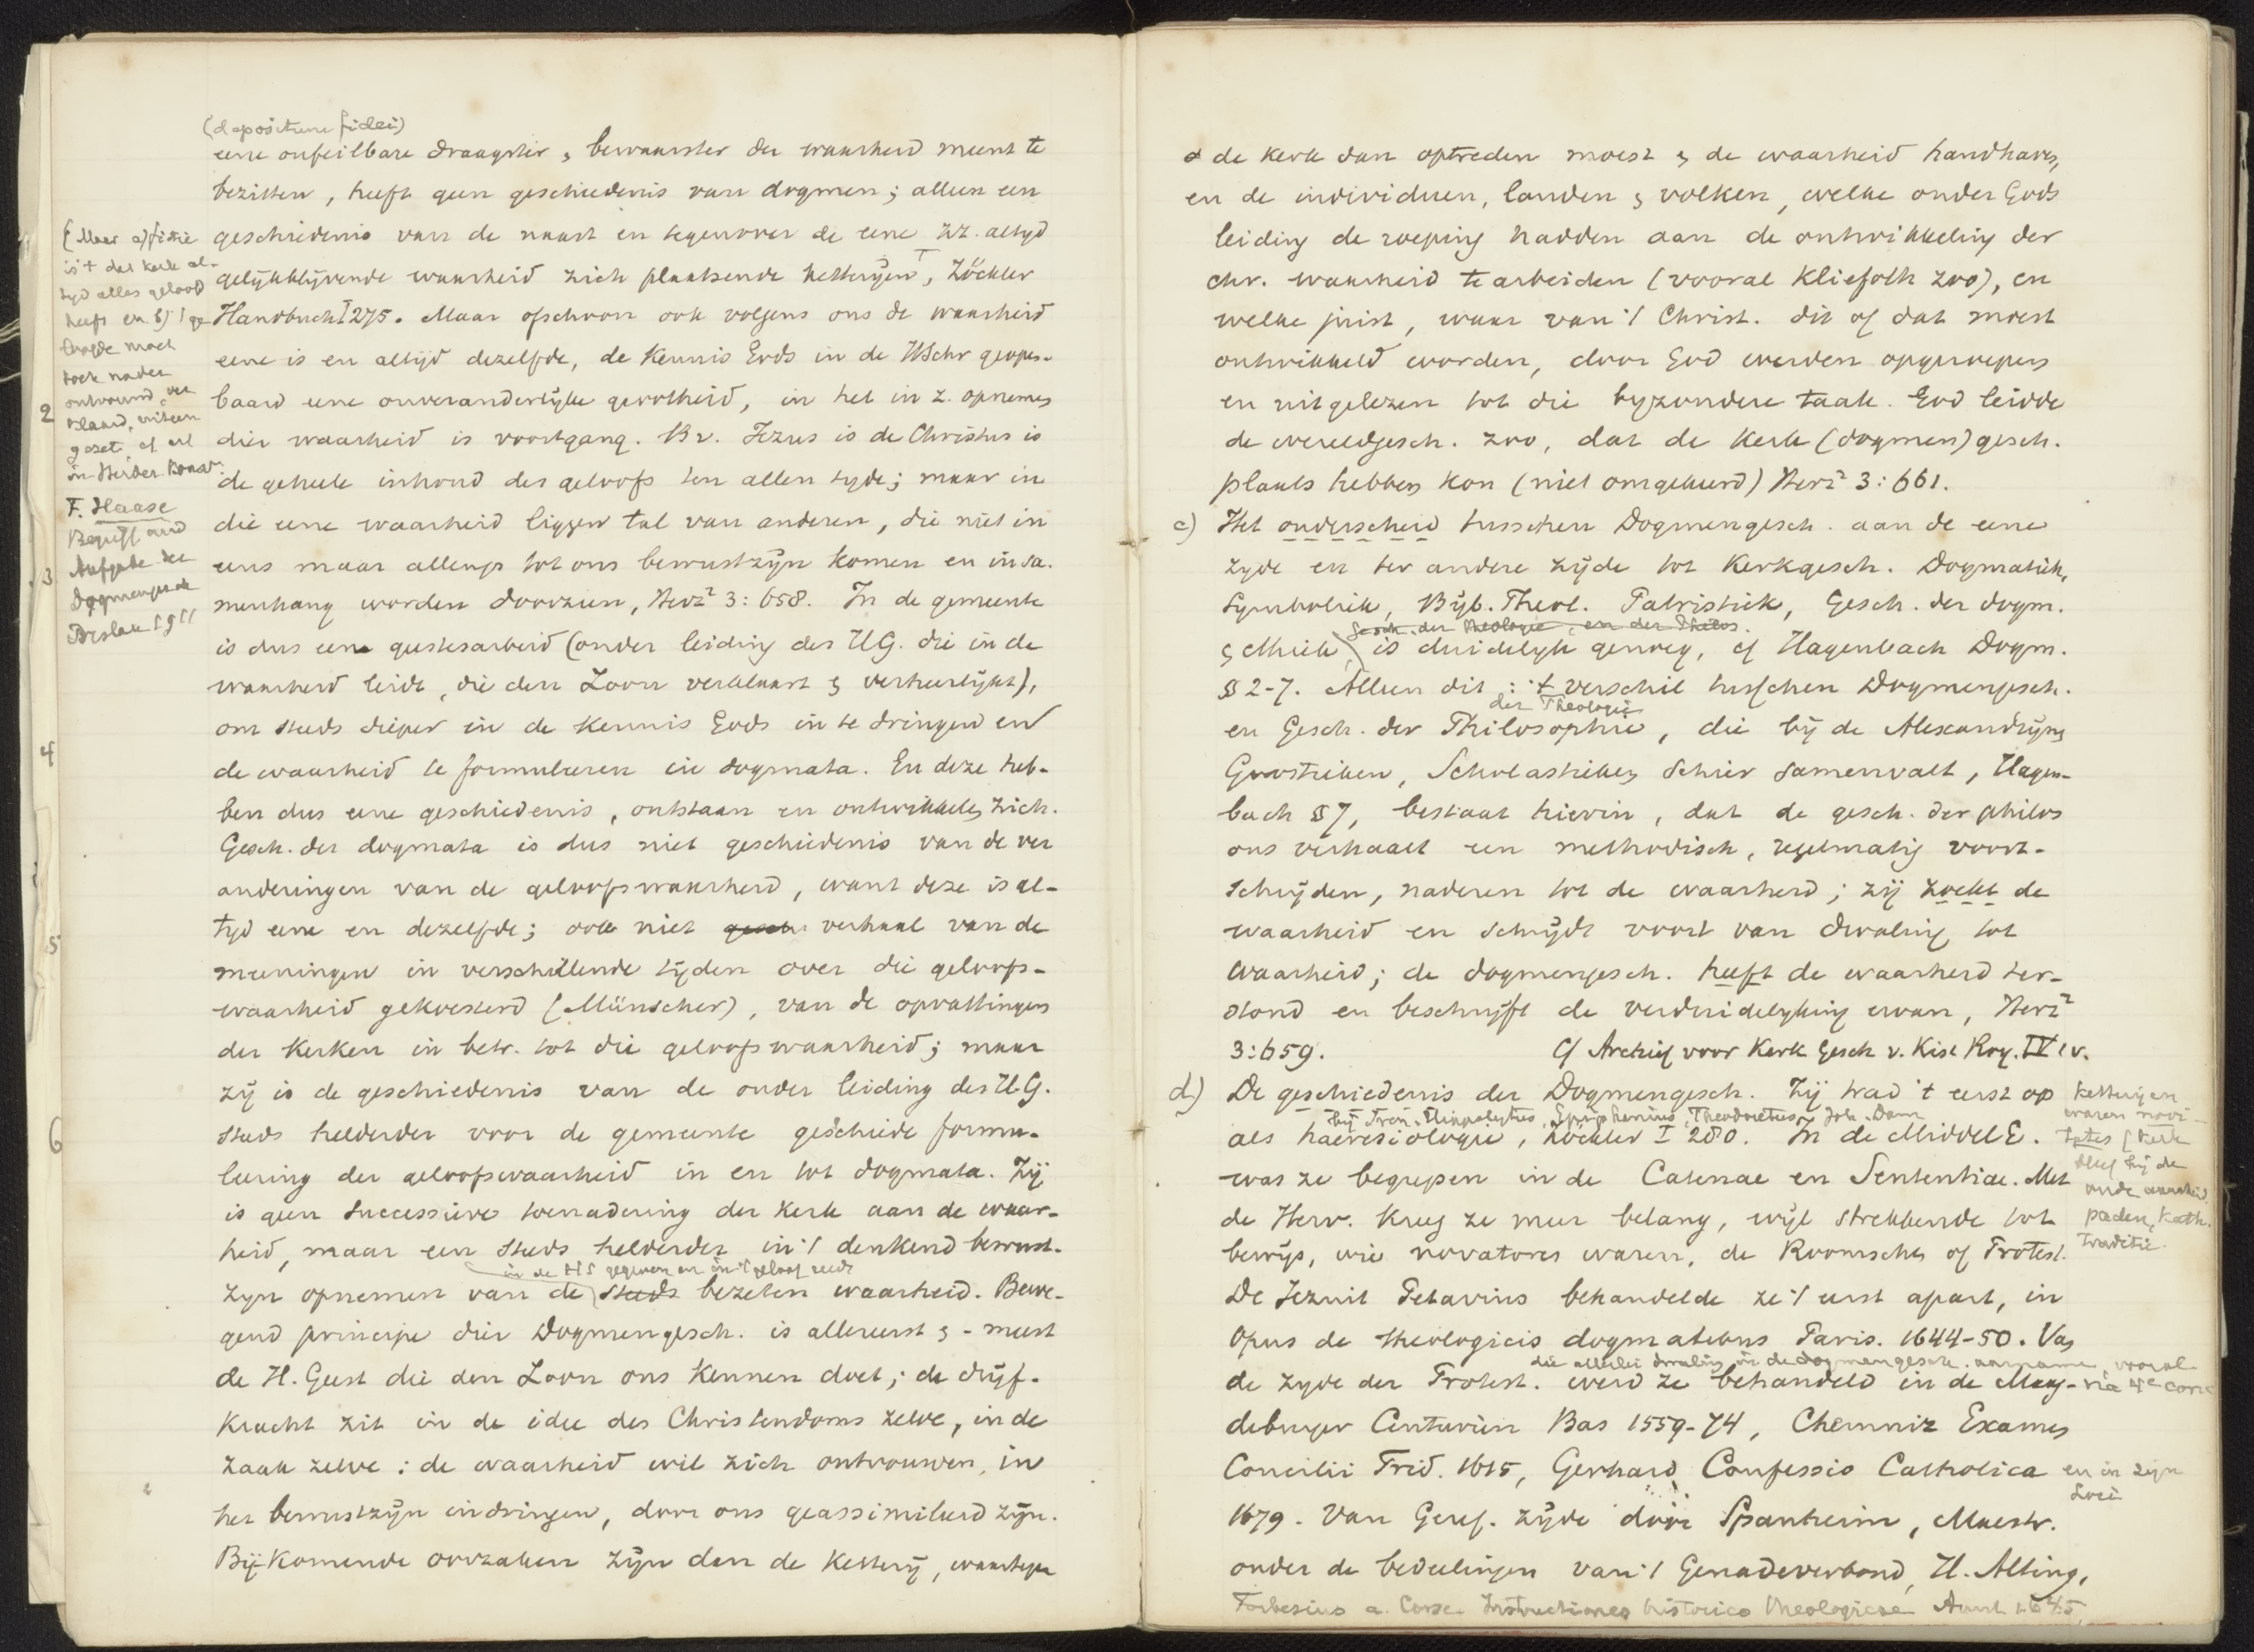 (depositum fidei)
eene onfeilbare draagster & bewaarster der waarheid meent te
bezitten, heeft geen geschiedenis van dogmen; alleen een
geschiedenis van de naast en tegenover de eene zz. altyd
gelijkblijvende waarheid zich plaatsende ketterijen, Zöckler
Handbuch I 275. Maar ofschoon ook volgens ons de waarheid
eene is en altijd dezelfde, de kennis Gods in de HSchr geopen-
baard eene onveranderlijke grootheid, in het in z. opnemen
dier waarheid is voortgang. Bv. Jezus is de Christus is
de geheele inhoud des geloofs ten allen tyde; maar in
die eene waarheid liggen tal van anderen, die niet in
eens maar allengs tot ons bewustzijn komen en in sa-
menhang worden doorzien, Herz² 3:658. In de gemeente
is dus eene geestesarbeid (onder leiding des H.G. die in de
waarheid leidt, die den Zoon verklaart & verheerlijkt),
om steeds dieper in de kennis Gods in te dringen en
de waarheid te formuleeren in dogmata. En deze heb-
ben dus eene geschiedenis, ontstaan en ontwikkelen zich.
Gesch. der dogmata is dus niet geschiedenis van de ver
anderingen van de geloofswaarheid, want deze is al-
tyd eene en dezelfde; ook niet gesch. verhaal van de
meeningen in verschillende tijden over die geloofs-
waarheid gekoesterd (Münscher), van de opvattingen
der Kerken in betr. tot die geloofswaarheid; maar
zij is de geschiedenis van de onder leiding des H.G.
steeds helderder voor de gemeente geschiede formu-
leering der geloofswaarheid in en tot dogmata. Zij
is geen successieve toenadering der Kerk aan de waar-
heid, maar een steeds helderder in 't denkend bewust-
in de HS gegeven en in 't geloof reeds
zyn opnemen van de steeds bezeten waarheid. Bewe-
gend principe dier Dogmengesch. is allereerst & - meest
de H. Geest die den Zoon ons kennen doet; de drijf-
kracht zit in de idee des Christendoms zelve, in de
zaak zelve: de waarheid wil zich ontvouwen, in
het bewustzijn indringen, door ons geassimileerd zijn.
Bij-Komende oorzaken zijn dan de ketterij, waartegen
(Maar a) fictie
is 't dat kerk al-
tyd alles geloofd
heeft en b) 't ge-
loofde moet
toch nader
ontvouwd, ver
klaard, uiteen
gezet, cf art
in Herder
F. Haase
Begriff und
Aufgabe der
Dogmengesch
Breslau 1911
2
3
4
5
6
de Kerk dan optreden moest & de waarheid handhaven,
en de individuen, landen & volken, welke onder Gods
leiding de roeping hadden aan de ontwikkeling der
chr. waarheid te arbeiden (vooral Kliefoth zoo), en
welke juist, waar van 't Christ. dit of dat moest
ontwikkeld worden, door God werden opgeroepen
en uitgelezen tot die byzondere taak. God leidde
de wereldgesch. zoo, dat de Kerk (dogmen) gesch.
plaats hebben kon (niet omgekeerd) Herz² 3:661.
c) Het onderscheid tusschen Dogmengesch. aan de eene
zyde en ter andere zijde tot Kerkgesch. Dogmatiek,
Symboliek, Bijb. Theol. Patristiek, Gesch. der dogm.
Gesch. der theologie, en der Philos.
& ethiek is duidelyk genoeg, cf Hagenbach Dogm.
§ 2-7. Alleen dit: 't verschil tusschen Dogmengesch.
der Theologie
en Gesch. der Philosophie, die bij de Alexandrijns
Gnostieken, Scholastieken schier samenvalt, Hagen-
bach § 7, bestaat hierin, dat de gesch. der philos
ons verhaalt een methodisch, regelmatig voort-
schrijden, naderen tot de waarheid; zij zoekt de
waarheid en schrijdt voort van dwaling tot
waarheid; de dogmengesch. heeft de waarheid ter-
stond en beschrijft de verduidelyking ervan, Herz²
3:659. Cf Archief voor Kerk Gesch v. Kist Roy. IV v.
d) De geschiedenis der Dogmengesch. Zij trad 't eerst op
bij Iren. Hippolytus, Epiphanius, Theodoretus, Joh. Dam
als haeresiologie, Zöckler I 280. In de Middel E.
was ze begrepen in de Catenae en Sententiae. Met
de Herv. kreeg ze meer belang, wijl strekkende tot
bewijs, wie novatores waren, de Roomschen of Protest.
De Jezuit Petavius behandelde ze 't eerst apart, in
Opus de theologicis dogmatibus Paris. 1644-50. Van
die allerlei dwaling in de dogmengesch. aanname, vooral
na 4e conc
de zyde der Protest. werd ze behandeld in de Mag-
deburger Centurien Bas 1559-74, Chemniz Examen
Concilii Trid. 1615, Gerhard, Confessio Catholica
en in zijn
Loci
1679. Van Geref. zijde door Spanheim, Maestr.
onder de bedeelingen van 't Genadeverbond, H. Alting,
Forbesius a Corse Instructiones historico theologicae Amst 1645,
ketterijen
waren novi-
tates (kerk
bleef bij de
oude waarheid
paden, kath.
traditie.